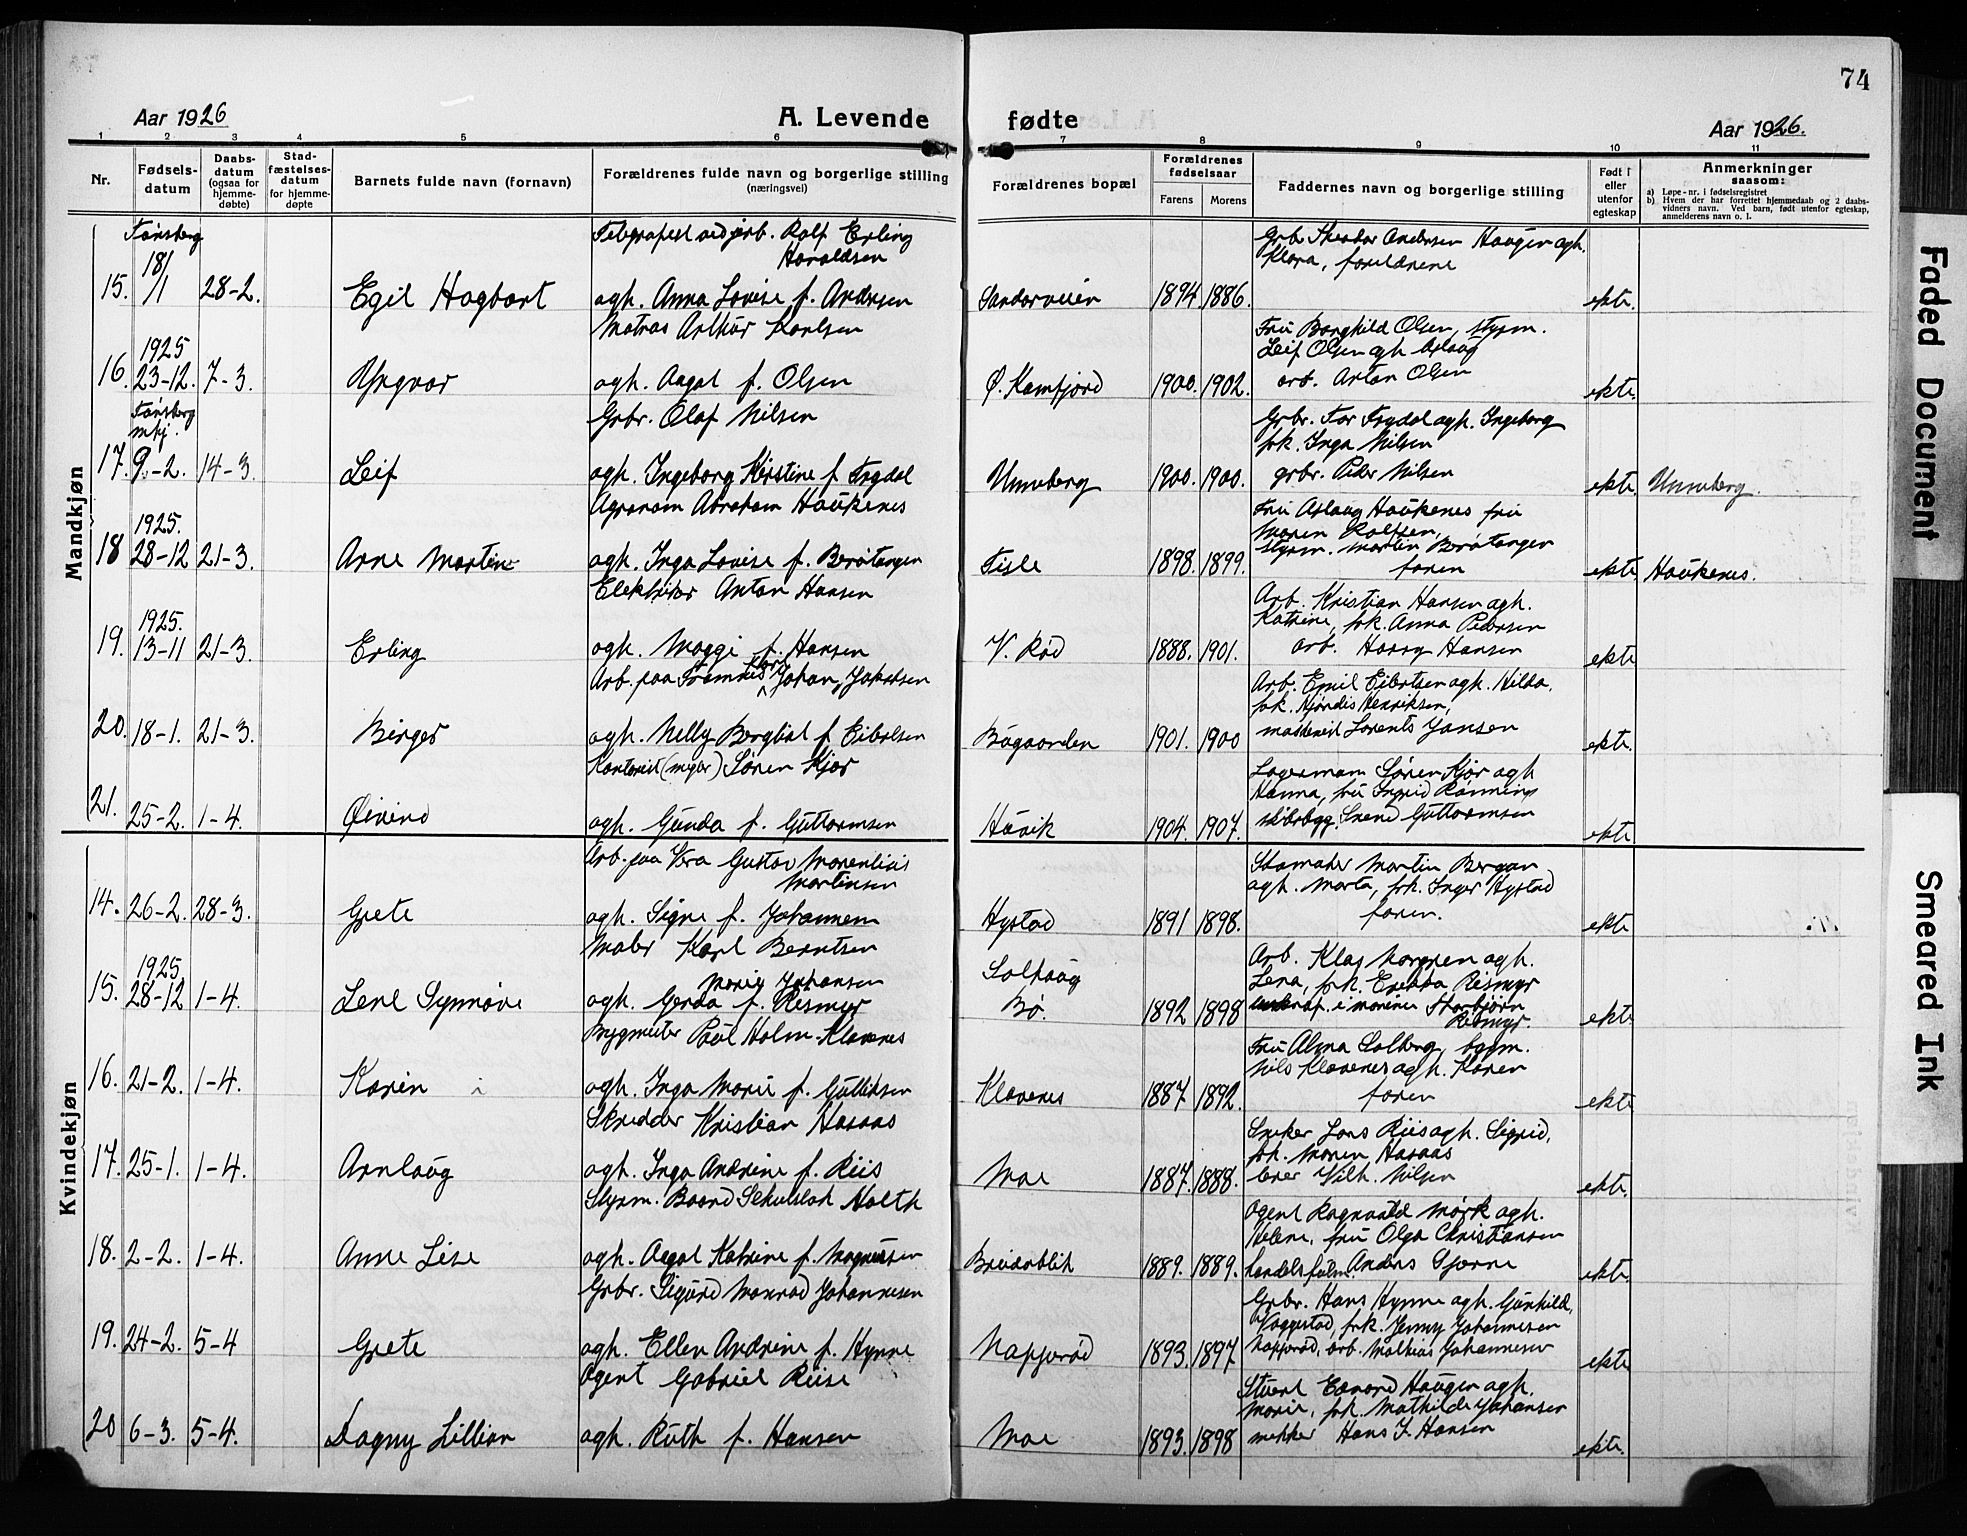 74
Aar 1926
A. Levende
fødte
Aar 1926.
1 2 3 4 5 6 7 8 9 10 11
Nr.
Fødsels-
datum
Daabs-
datum
(ogsaa for
hjemme-
døbte)
Stad-
fæstelses-
datum
for hjemme-
døpte
Barnets fulde navn (fornavn)
Forældrenes fulde navn og borgerlige stilling
(næringsvei)
Forældrenes bopæl
Forældrenes
fødselsaar
Farens Morens
Faddernes navn og borgerlige stilling
Født i
eller
utenfor
egteskap
Anmerkninger
saasom:
a) Løpe-nr. i fødselsregistret
b) Hvem der har forrettet hjemmedaab og 2 daabs-
vidners navn. Ved barn, født utenfor egteskap,
anmelderens navn o. l.
Mandkjøn
Tønsberg
15. 18/1 28-2. Egil Hagbart
Telegrafist ved jrb. Rolf Erling
Haraldsen
agh. Anna Lovise f. Andersen
Sandarveien 1894 1886.
Grbr. Theodor Andersen Haugen agh.
Klara, forældrene
ekte.
16. 1925
23-12. 7-3. Yngvar
Matros Arthur Karlsen
agh. Aagot f. Olsen
Ø. Kamfjord 1900. 1902.
Fru Borghild Olsen, styrm.
Leif Olsen agh. Aslaug
arb. Anton Olsen
ekte.
Tønsberg
17. 9-2. 14-3. Leif
Grbr. Olaf Nilsen
agh. Ingeborg Kirstine f. Trydal
Unneberg 1900. 1900.
Grbr. Tor Trydal agh. Ingeborg
frk. Inga Nilsen
grbr. Peder Nilsen
ekte. Unneberg.
18 1925.
28-12 21-3. Arne Martin
Agronom Abraham Haukenes
agh. Inga Lovise f. Berøtangen
Fisle 1898. 1899.
Fru Aslaug Haukenes fru
Maren
styrm. Martin Berøtangen
faren
ekte Haukenes.
19. 1925.
13-11 21-3. Erling
Elektriker Anton Hansen
agh. Maggi f. Hansen
V. Rød 1888. 1901.
Arb. Kristian Hansen agh.
Katrine, frk. Anna Pedersen
arb. Harry Hansen
ekte
20. 18-1. 21-3. Birger
Arb. paa Framnes Johan Jakobsen
agh. Nelly Bergliot f. Eibertsen
Bøgaarden 1901. 1900
Arb. Emil Eibertsen agh. Hilda,
frk. Hjørdis Henriksen,
maskinist Lorents Jansen
ekte.
21. 25-2. 1-4. Øivind
Kontorist (meger) Søren Kjær
agh. Gunda f. Guttormsen
Haavik 1904. 1907.
Lagermann Søren Kjær agh
Hanna, fru Ingrid Rønning
skibsbygg. Svend Guttormsen
ekte
Kvindekjøn
14. 26-2. 28-3. Grete
Arb. paa Vera Gustav Marentius
Martinsen
agh. Signe f. Johannesen
Hystad 1891 1898.
Skomaker Martin Bergan
agh. Marta, frk. Inger Hystad
faren.
ekte
15. 1925
28-12 1-4. Lene Synnøve
Maler Karl Berntsen
agh. Gerda Marie Johansen f. Resmyr
Solhaug
Bø. 1892 1898
Arb. Klas Norgren agh.
Lena, frk. Resmyr
i marinen
Resmyr.
ekte.
16. 21-2. 1-4. Karin
Bygmester Paul Holm-Klavenes
agh. Inga Marie f. Gulliksen
Klavenes 1887 1892.
Fru Alma Solberg,
Nils Klavenes agh. Karen
faren
ekte
17. 25-1. 1-4. Arnlaug
Skredder Kristian Hasaas
agh. Inga Andrine f. Riis
Moe 1887. 1888.
Snekker Lars Riis agh. Sigrid,
frk. Maren Hasaas
Vilh. Nilsen
ekte.
18. 2-2. 1-4. Anne Lise
Styrm. Baard Holth
agh. Aagot Katrine f. Magnussen
Breidablik 1889. 1889.
Agent Ragnvald Mørk agh.
Helene, fru Olga Christiansen
handelsfulm. Anders Gjerne
ekte.
19. 24-2. 5-4 Grete
Grbr. Sigurd Monrad Johannesen
agh. Ellen Andrine f. Hynne
Napperød 1893. 1897
Grbr. Hans Hynne agh. Gunhild,
Vaggestad, frk. Jenny Johannesen
Napperød, arb. Mathias Johannesen
ekte
20 6-3. 5-4. Dagny Lillian
Agent Gabriel Riise
agh. Ruth f. Hansen
Moe 1893. 1898
Stuert Edvard Haugen agh.
Marie, frk. Mathilde Johansen
mekker Hans J. Hansen
ekte.
Faded Document
Smeared Ink